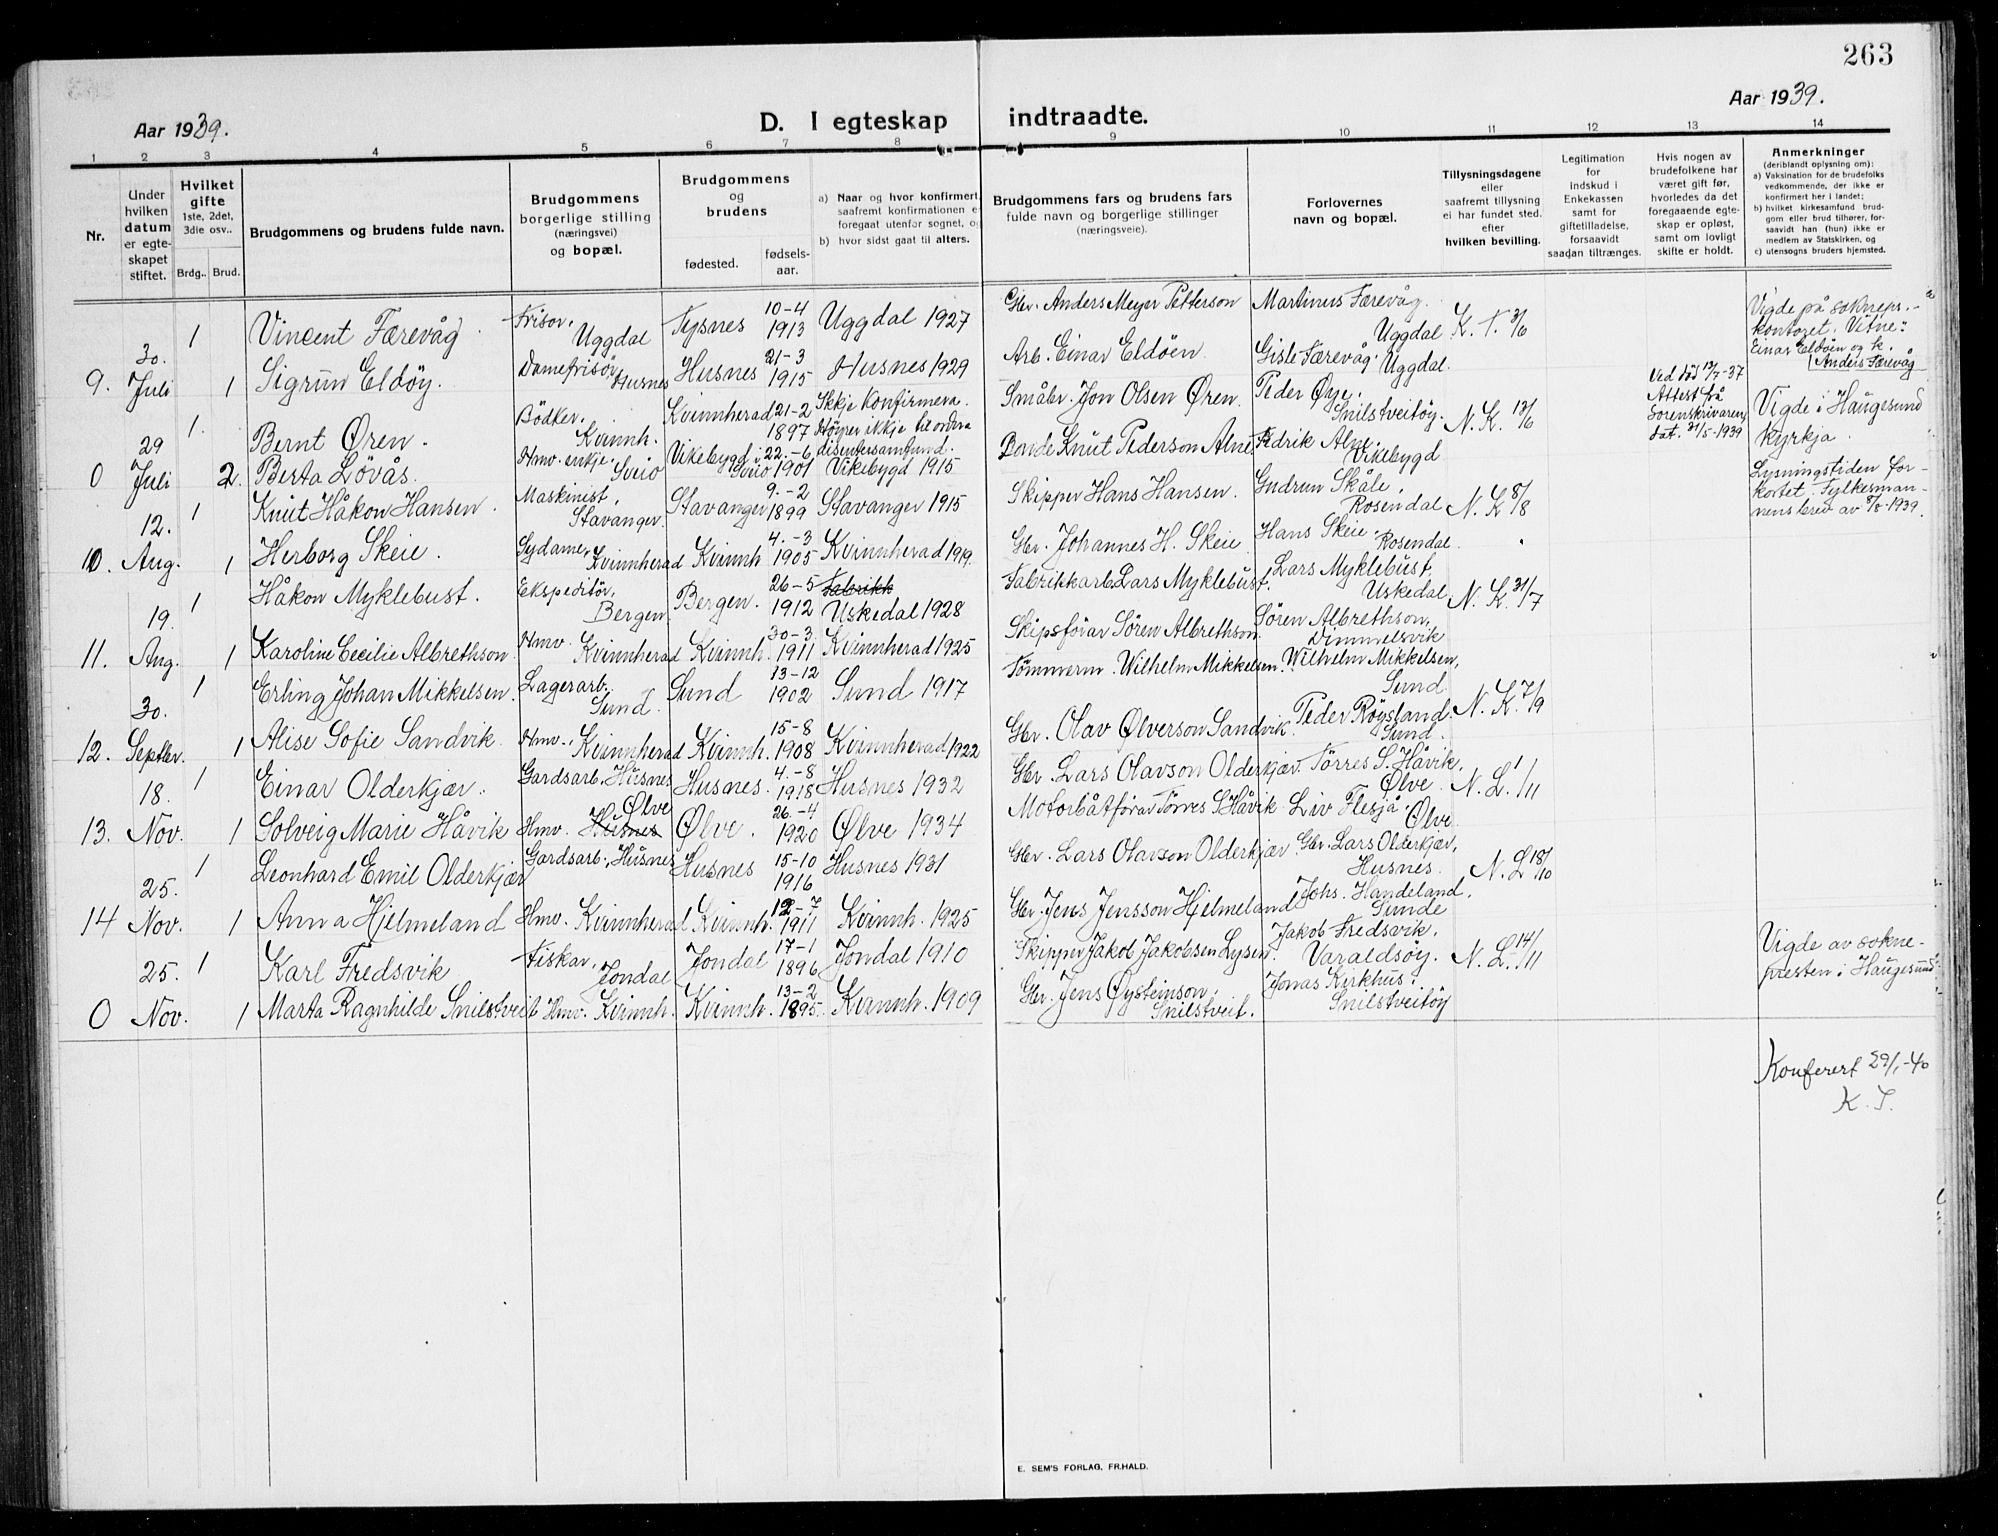 263
Aar 1939.
D. I egteskap indtraadte.
Aar 1939.
1 2 3 4 5 6 7 8 9 10 11 12 13 14
Nr.
Under hvilken datum er egteskapet stiftet.
Hvilket gifte 1ste, 2det, 3die osv..
Brdg.. Brud.
Brudgommens og brudens fulde navn.
Brudgommens borgerlige stilling (næringsvei) og bopæl.
Brudgommens og brudens
fødested.
fødsels-aar.
a) Naar og hvor konfirmert, saafremt konfirmationen er foregaat utenfor sognet, og
b) hvor sidst gaat til alters.
Brudgommens fars og brudens fars fulde navn og borgerlige stillinger (næringsveie).
Forlovernes navn og bopæl.
Tillysningsdagene eller saafremt tillysning ei har fundet sted. efter hvilken bevilling.
Legitimation for indskud i Enkekassen samt for giftetilladelse, forsaavidt saadan tiltrænges.
Hvis nogen av brudefolkene har været gift før, hvorledes da det foregaaende egteskap er opløst, samt om lovligt skifte er holdt.
Anmerkninger
(deriblandt oplysning om):
a) Vaksination for de brudefolks vedkommende, der ikke er konfirmert her i landet;
b) hvilket kirkesamfund brudgom eller brud tilhører, forsaavidt han (hun) ikke er medlem av Statskirken, og
c) utensogns bruders hjemsted.
9. 30. Juli
1 Vincent Færevåg. Frisør, Uggdal Tysnes 10-4 1913 Uggdal 1927 Gbr. Anders Meyer Petterson Martinus Færevåg. Uggdal K. T. 3/6
Vigde på sokneprs.-kontoret. Vitne: Einar Eldöen og k. Anders Færevåg
1 Sigrun Eldöy. Damefrisør, Husnes Husnes 21-3 1915 Husnes 1929 Arb. Einar Eldöen. Gisle Færevåg. Uggdal.
0 29 Juli
1. Bernt Øren. Bödker, Kvinnh. Kvinnherad 21-2 1897 Ikkje konfirmera. Høyrer ikkje til ordna disentersamfund. Småbr. Jon Olsen Øren. Peder Øye. Snilstveitöy. N. K. 13/6
Ved død 13/7-37 Attest frå Sorenskrivaren, dat. 31/5-1939
Vigde i Haugesund kyrkja.
2. Berta Lövås. Hmv. enkje. Sveio Vikebygd i Sveio 22.-6 1901 Vikebygd 1915 Bonde Knut Pederson Alne Fedrik Alne. Vikebygd
10. 12. Aug.
1 Knut Håkon Hansen. Maskinist, Stavanger. Stavanger 9.-2 1899 Stavanger 1915 Skipper Hans Hansen. Gudrun Skåle, Rosendal N. K 8/8
Lysningstiden forkortet. Fylkesmannens brev av 8/8-1939.
1 Herborg Skeie. Sydame, Kvinnherad Kvinnh 4.-3 1905 Kvinnherad 1919. Gbr. Johannes H. Skeie Hans Skeie. Rosendal.
11. 19. Aug.
1 Håkon Myklebust. Ekspeditör, Bergen Bergen. 26-5 1912 Fabrikk Uskedal 1928 Fabrikkarb. Lars Myklebust. Lars Myklebust, Uskedal N. K. 31/7
1 Karoline Cecilie Albrethson. Hmv. Kvinnherad Kvinnh. 30-3 1911 Kvinnherad 1925 Skipsförar Sören Albrethson. Sören Albrethson, Dimmelsvik
12. 30. Septbr.
1 Erling Johan Mikkelsen. Lagerarb. Sund. Sund 13-12 1902 Sund 1917 Tömmerm. Wilhelm Mikkelsen. Wilhelm Mikkelsen, Sund N. K. 7/9
1 Alise Sofie Sandvik. Hmv., Kvinnherad Kvinnh. 15-8 1908 Kvinnherad 1922 Gbr. Olav Ølverson Sandvik. Peder Röysland. Sund.
13. 18. Nov.
1 Einar Olderkjær. Gardsarb. Husnes Husnes. 4.-8 1918 Husnes 1932 Gbr. Lars Olavson Olderkjær. Törres S. Håvik, Ølve. N. L. 1/11
1 Solveig Marie Håvik Hmv. Husnes Ølve Ølve. 26.-4 1920 Ølve 1934 Motorbåtförar Törres S Håvik Liv Flesjå. Ølve
14 25. Nov.
1 Leonhard Emil Olderkjær Gardsarb., Husnes Husnes 15-10 1916 Husnes 1931 Gbr. Lars Olavson Olderkjær Gbr. Lars Olderkjær, Husnes. N. L 18/10
1 Anna Hjelmeland Hmv. Kvinnherad Kvinnh. 12-7 1911 Kvinnh. 1925 Gbr. Jens Jensson Hjelmeland Johs. Handeland. Sunde
0 25. Nov.
1 Karl Fredsvik Fiskar, Jondal Jondal 17-1 1896 Jondal 1910 Skipper Jakob Jakobsen Lysen. Jakob Fredsvik, Varaldsöy. N. L. 14/11
Vigde av soknepresten i Haugesund
1 Marta Ragnhilde Snilstveit Hmv. Kvinnh. Kvinnh. 13-2 1895. Kvinnh. 1909 Gbr. Jens Øysteinson, Snilstveit. Jonas Kirkhus. Snilstveitöy
Konferert 29/1-40
K. T.
E. SEM'S FORLAG, FR.HALD.